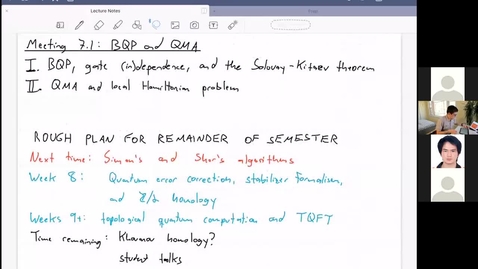 Lecture Notes
Meeting 7.1: BQP and QMA
I. BQP, gate (in)dependence, and the Solovay-Kitaev theorem
II. QMA and local Hamiltonian problem
ROUGH PLAN FOR REMAINDER OF SEMESTER
Next time: Simon's and Shor's algorithms
Week 8: Quantum error correction, stabilizer formalism,
and Z/2 homology
Weeks 9+: topological quantum computation and TQFT
Time remaining: Khovanov homology?
student talks